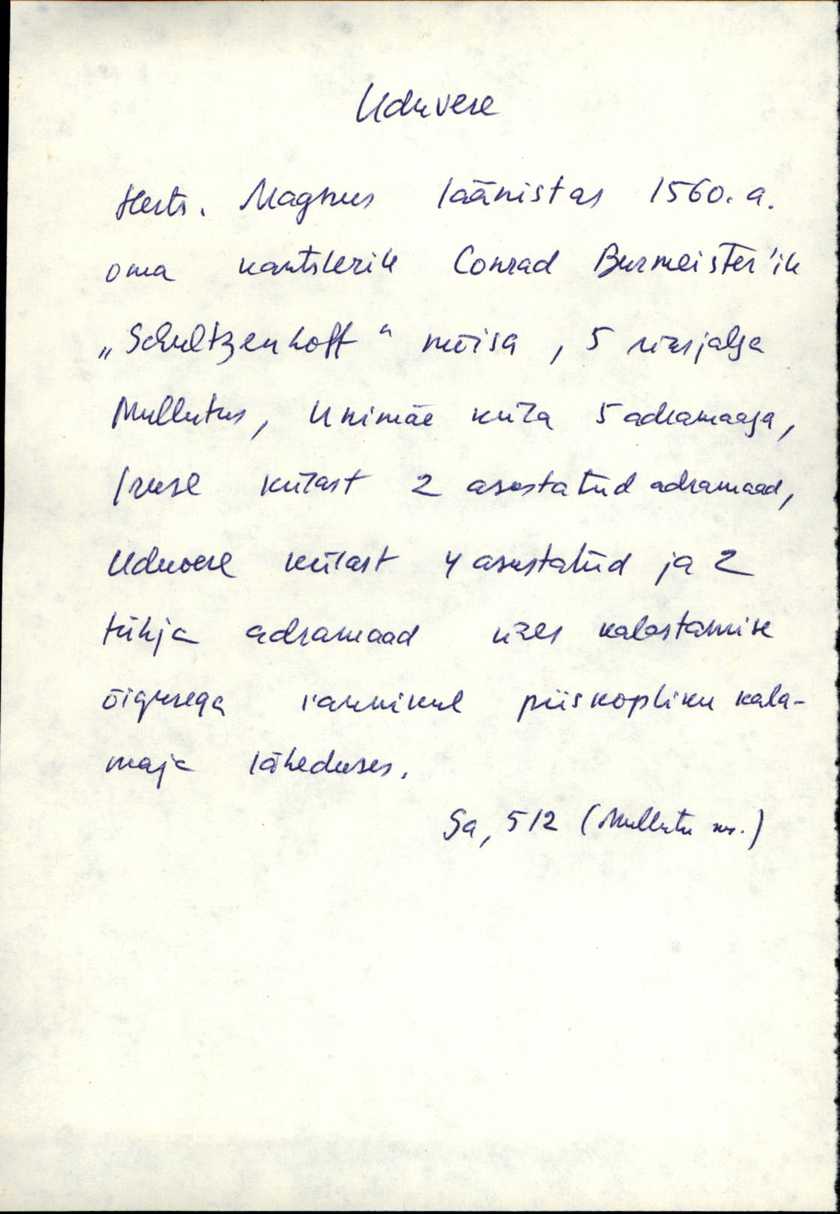 Uduvere
Herts. Magnus läänistas 1560. a.
oma kantslerile Conrad Burmeister'ile
„Schultzenhoff" mõisa, 5 üksjalga
Mullutus, Unimäe küla 5 adramaaga,
Iruse külast 2 asustatud adramaad,
Uduvere külast 4 asustatud ja 2
tühja adramaad ühes kalastamise
õigusega rannikul piiskopliku kala-
maja läheduses.
Sa, 512 (Mullutu m.)